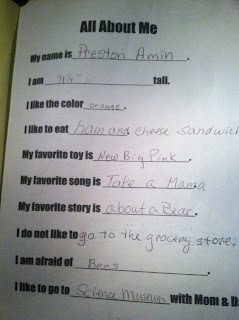 All About Me
My name is Preston Amin.
I am 41½" tall.
I like the color orange.
I like to eat ham and cheese sandwich
My favorite toy is New Big Pink.
My favorite song is Take a Mama
My favorite story is about a Bear.
I do not like to go to the grocery store.
I am afraid of Bees.
I like to go to Science Museum with Mom & D